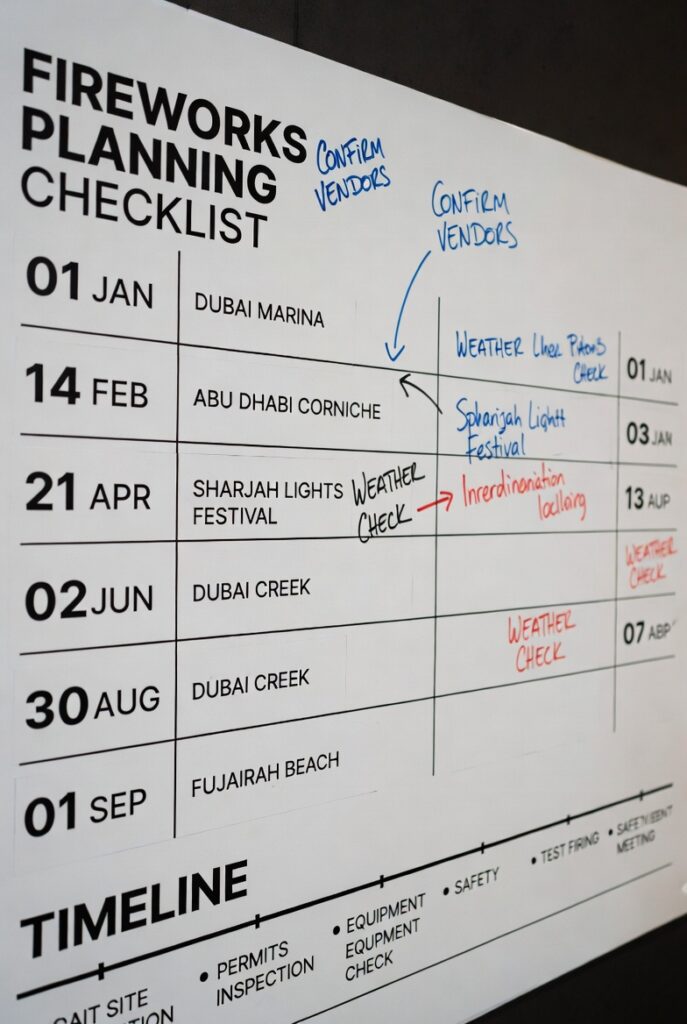 FIREWORKS
PLANNING
CHECKLIST
CONFIRM
VENDORS
CONFIRM
VENDORS
01 JAN
DUBAI MARINA
WEATHER
CHECK
01 JAN
14 FEB
ABU DHABI CORNICHE
Festival
03 JAN
21 APR
SHARJAH LIGHTS
FESTIVAL
WEATHER
CHECK
13 AUP
02 JUN
DUBAI CREEK
WEATHER
CHECK
30 AUG
DUBAI CREEK
WEATHER
CHECK
07 ABP
01 SEP
FUJAIRAH BEACH
TIMELINE
SITE
PERMITS
INSPECTION
EQUIPMENT
EQUPMENT
CHECK
SAFETY
TEST FIRING
MEETING